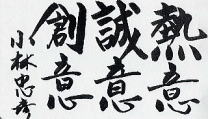 熱意
誠意
創意
小林忠彦